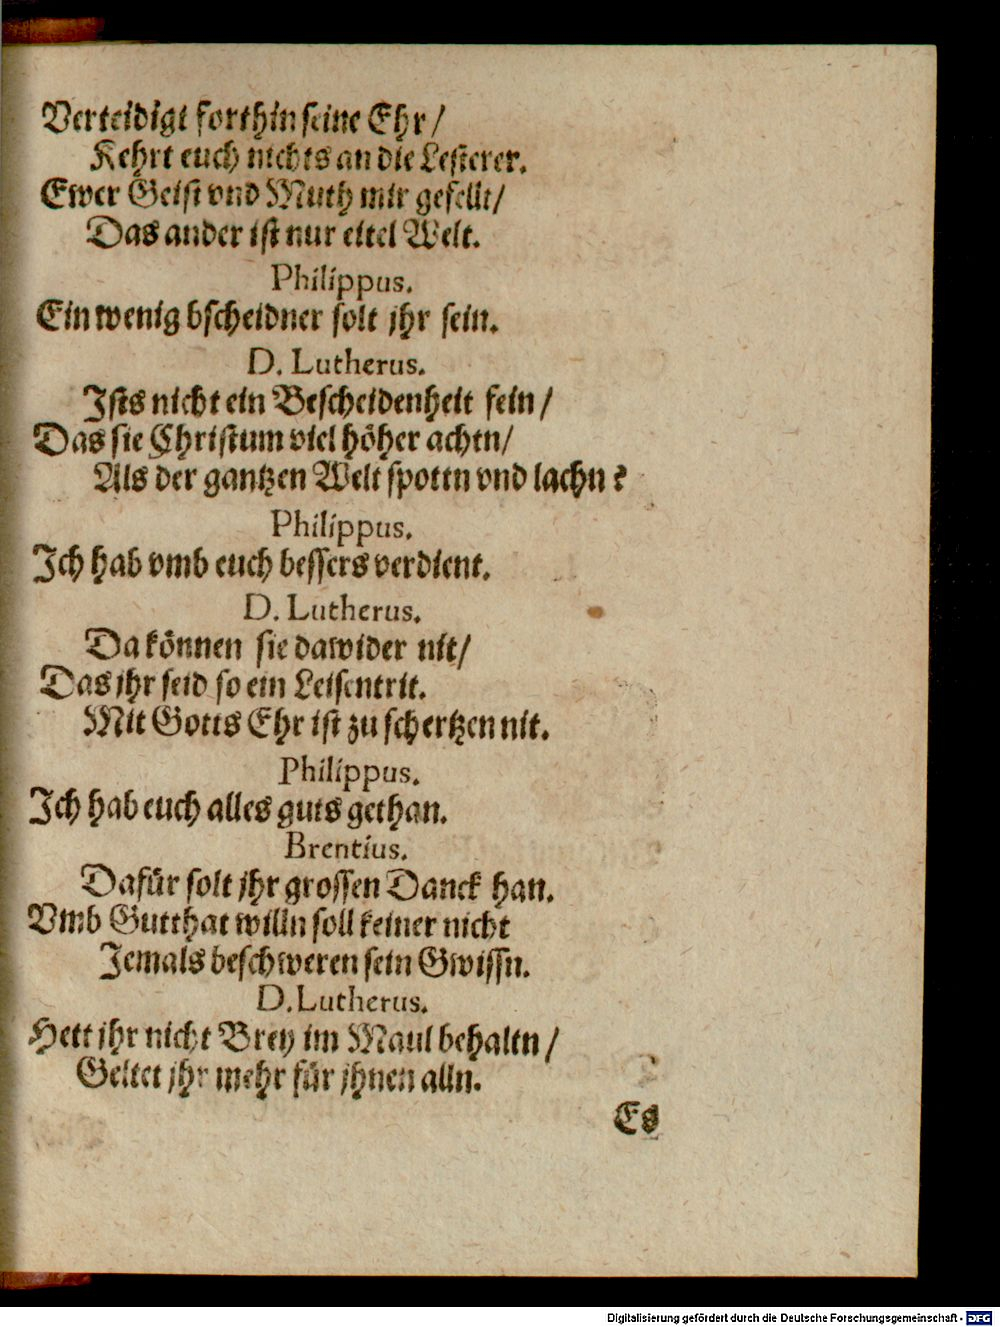 Verteidigt forthin seine Ehr /
Kehrt euch nichts an die Lesterer.
Ewer Geist vnd Muth mir gefellt /
Das ander ist nur eitel Welt.
Philippus.
Ein wenig bscheidner solt jhr sein.
D. Lutherus.
Ists nicht ein Bescheidenheit fein /
Das sie Christum viel höher achtn /
Als der gantzen Welt spottn vnd lachn ?
Philippus.
Ich hab vmb euch bessers verdient.
D. Lutherus.
Da können sie dawider nit /
Das jhr seid so ein Leisentrit.
Mit Gotts Ehr ist zu schertzen nit.
Philippus.
Ich hab euch alles guts gethan.
Brentius.
Dafür solt jhr grossen Danck han.
Vmb Gutthat willn soll keiner nicht
Jemals beschweren sein Gwissn.
D. Lutherus.
Hett jhr nicht Brey im Maul behaltn /
Geltet jhr mehr für jhnen alln.
Es
Digitalisierung gefördert durch die Deutsche Forschungsgemeinschaft - DFG